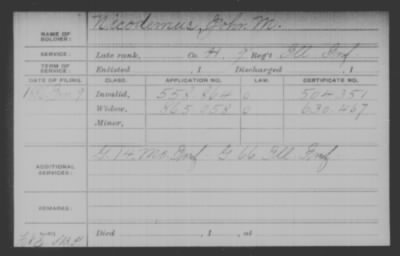 NAME OF SOLDIER: Nicodemus, John M.
SERVICE: Late rank, Co. H, 9 Reg't Ill Inf
TERM OF SERVICE: Enlisted , 1 Discharged , 1
DATE OF FILING. CLASS. APPLICATION NO. LAW. CERTIFICATE NO.
Invalid, 553.864 504.351
Widow, 865.058 630.467
Minor,
ADDITIONAL SERVICES: G. 14 Mo. Inf G 66 Ill. Inf
REMARKS:
Died , 1 , at